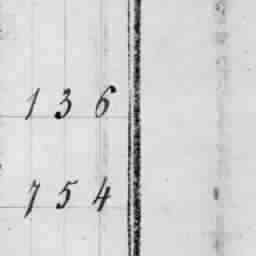 136
754